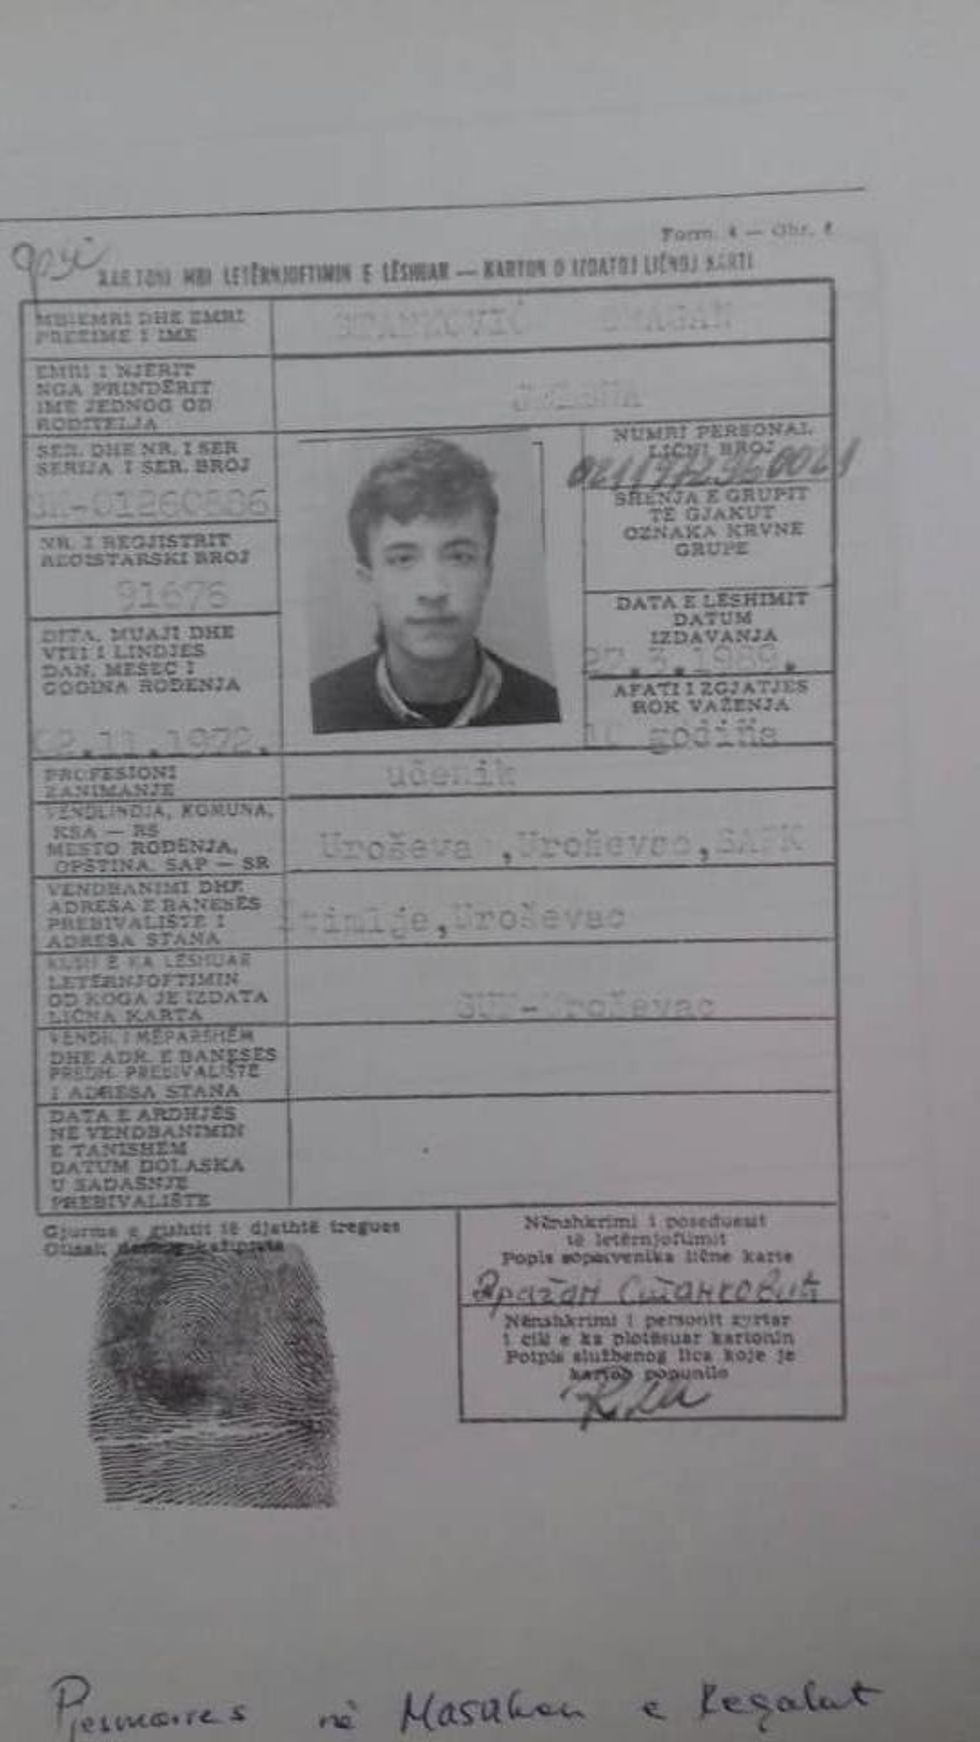 Form. 4 — Obr. 4
KARTONI MBI LETËRNJOFTIMIN E LËSHUAR — KARTON O IZDATOJ LIČNOJ KARTI
MBIEMRI DHE EMRI
PREZIME I IME
STANKOVIĆ DRAGAN
EMRI I NJERIT
NGA PRINDËRIT
IME JEDNOG OD
RODITELJA
SER. DHE NR. I SER
SERIJA I SER. BROJ
NUMRI PERSONAL
LIČNI BROJ
SHENJA E GRUPIT
TË GJAKUT
OZNAKA KRVNE
GRUPE
NR. I REGJISTRIT
REGISTARSKI BROJ
91676
DATA E LËSHIMIT
DATUM
IZDAVANJA
DITA, MUAJI DHE
VITI I LINDJES
DAN, MESEC I
GODINA ROĐENJA
AFATI I ZGJATJES
ROK VAŽENJA
10 godina
PROFESIONI
ZANIMANJE
učenik
VENDLINDJA, KOMUNA,
KSA — RS
MESTO ROĐENJA,
OPŠTINA, SAP — SR
Uroševac,Uroševac,SAPK
VENDBANIMI DHE
ADRESA E BANESËS
PREBIVALIŠTE I
ADRESA STANA
Štimlje,Uroševac
KUSH E KA LËSHUAR
LETËRNJOFTIMIN
OD KOGA JE IZDATA
LIČNA KARTA
SUP-Uroševac
VENDB. I MËPARSHËM
DHE ADR. E BANESËS
PREDH. PREBIVALIŠTE
I ADRESA STANA
DATA E ARDHJES
NË VENDBANIMIN
E TANISHËM
DATUM DOLASKA
U SADAŠNJE
PREBIVALIŠTE
Gjurma e gishtit të djathtë tregues
Otisak desnog kažiprsta
Nënshkrimi i poseduesit
të letërnjoftimit
Popis sopstvenika lične karte
Драган Станковић
Nënshkrimi i personit zyrtar
i cili e ka plotësuar kartonin
Potpis službenog lica koje je
karton popunilo
Pjesmarres në Masaken e Reçakut